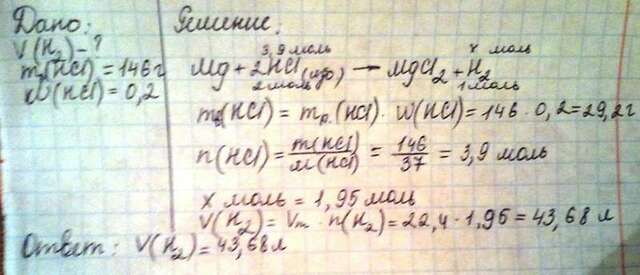 Дано:
V(H₂) - ?
m(HCl) = 146 г
W(HCl) = 0,2
Решение:
3,9 моль x моль
Mg + 2HCl(изб) → MgCl₂ + H₂
2 моль 1 моль
m(HCl) = mр.(HCl) · W(HCl) = 146 · 0,2 = 29,2 г
n(HCl) = m(HCl)/M(HCl) = 146/37 = 3,9 моль
x моль = 1,95 моль
V(H₂) = Vm · n(H₂) = 22,4 · 1,95 = 43,68 л
Ответ: V(H₂) = 43,68 л